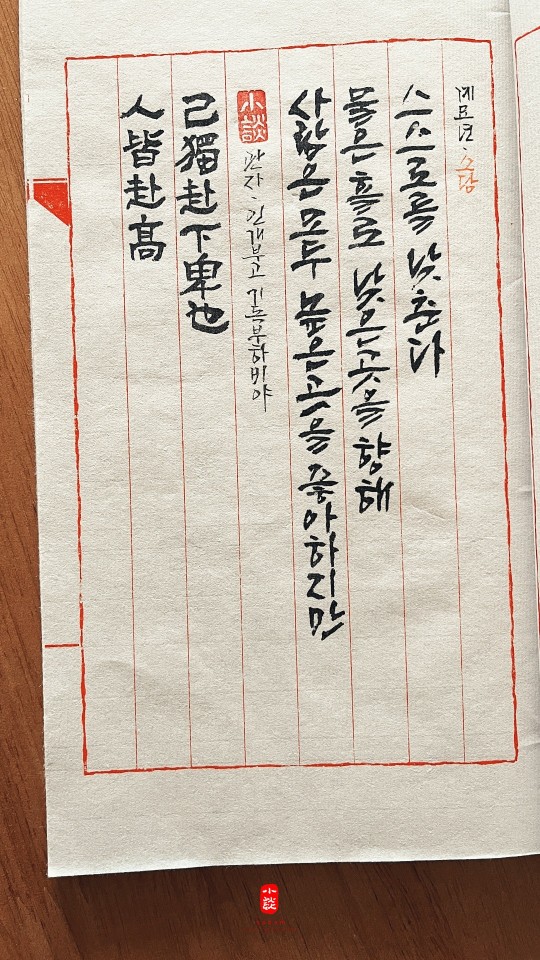 人皆赴高
己獨赴下卑也
小談
관자 · 인개부고 기독부하비야
사람은 모두 높은곳을 좋아하지만
물은 홀로 낮은곳을 향해
스스로를 낮춘다
계묘년 · 소담
小談